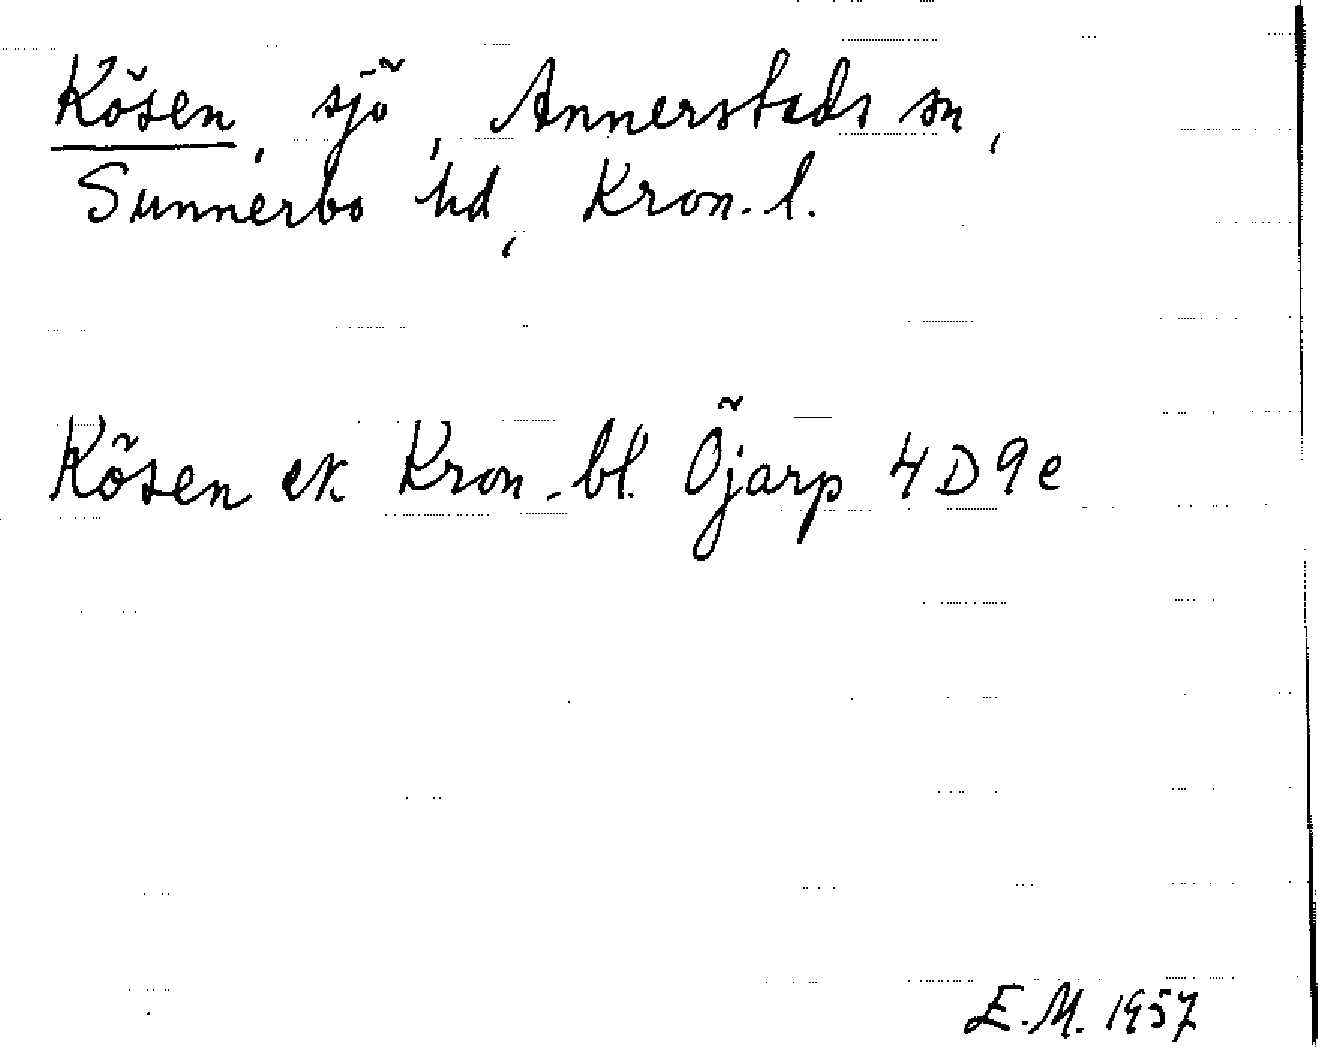 Kösen, sjö, Annerstads sn,
Sunnerbo hd, Kron. l.
Kösen ek Kron. bl. Öjarp 4D9e
E.M. 1957